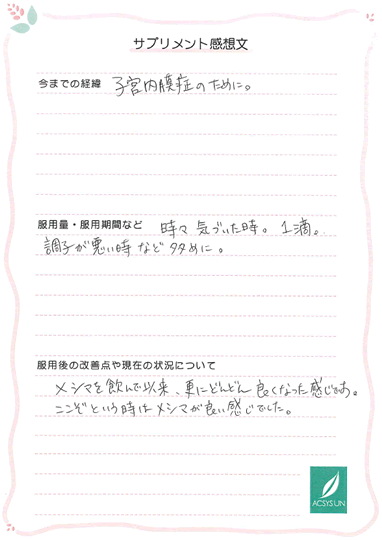 サプリメント感想文
今までの経緯 子宮内膜症のために。
服用量・服用期間など 時々 気づいた時。1滴。
調子が悪い時など多めに。
服用後の改善点や現在の状況について
メシマを飲んで以来、更にどんどん良くなった感じです。
ここぞという時はメシマが良い感じでした。
ACSYSUN